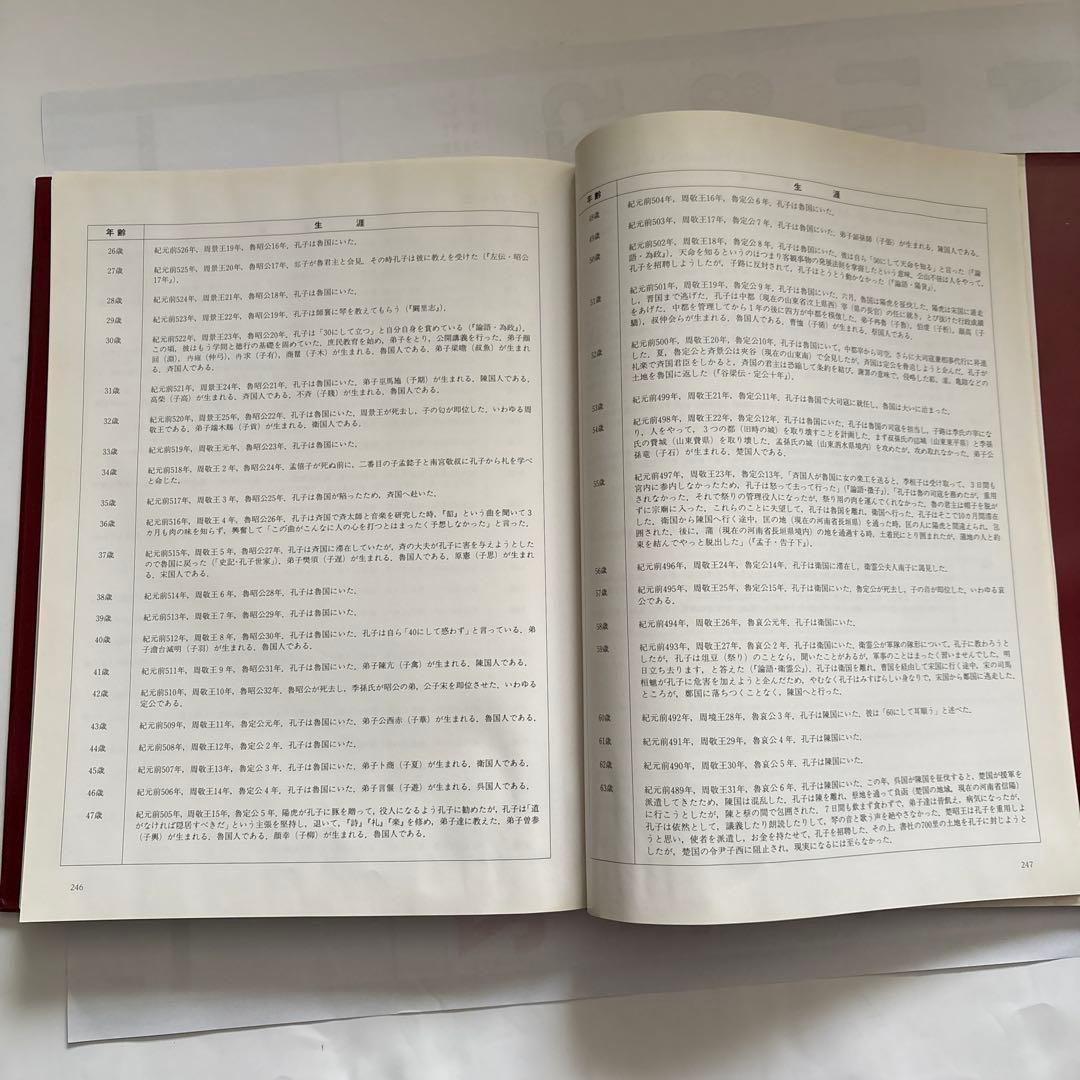 年齢 生涯
26歳 紀元前526年，周景王19年，魯昭公16年，孔子は魯国にいた．
27歳 紀元前525年，周景王20年，魯昭公17年，郯子が魯君主と会見，その時孔子は彼に教えを受けた（『左伝・昭公
17年』）．
28歳 紀元前524年，周景王21年，魯昭公18年，孔子は魯国にいた．
29歳 紀元前523年，周景王22年，魯昭公19年，孔子は師襄に琴を教えてもらう（『闕里志』）．
30歳 紀元前522年，周景王23年，魯昭公20年，孔子は「30にして立つ」と自分自身を賞めている（『論語・為政』），
この頃，彼はもう学問と徳行の基礎を固めていた．庶民教育を始め，弟子をとり，公開講義を行った．弟子顔
回（淵），冉雍（仲弓），冉求（子有），商瞿（子木）が生まれる．魯国人である．弟子梁鱣（叔魚）が生まれ
る．斉国人である．
31歳 紀元前521年，周景王24年，魯昭公21年，孔子は魯国にいた．弟子巫馬施（子期）が生まれる．陳国人である．
高柴（子高）が生まれる．斉国人である．不斉（子賤）が生まれる．魯国人である．
32歳 紀元前520年，周景王25年，魯昭公22年，孔子は魯国にいた．周景王が死去し，子の匄が即位した．いわゆる周
敬王である．弟子端木賜（子貢）が生まれる．衛国人である．
33歳 紀元前519年，周敬王元年，魯昭公23年，孔子は魯国にいた．
34歳 紀元前518年，周敬王２年，魯昭公24年，孟僖子が死ぬ前に，二番目の子孟懿子と南宮敬叔に孔子から礼を学べ
と命じた．
35歳 紀元前517年，周敬王３年，魯昭公25年，孔子は魯国が陥ったため，斉国へ赴いた．
36歳 紀元前516年，周敬王４年，魯昭公26年，孔子は斉国で斉大師と音楽を研究した時，『韶』という曲を聞いて３
カ月も肉の味を知らず，興奮して「この曲がこんなに人の心を打つとはまったく予想しなかった」と言った．
37歳 紀元前515年，周敬王５年，魯昭公27年，孔子は斉国に滞在していたが，斉の大夫が孔子に害を与えようとした
ので魯国に戻った（『史記・孔子世家』）．弟子樊須（子遅）が生まれる．魯国人である．原憲（子思）が生まれ
る．宋国人である．
38歳 紀元前514年，周敬王６年，魯昭公28年，孔子は魯国にいた．
39歳 紀元前513年，周敬王７年，魯昭公29年，孔子は魯国にいた．
40歳 紀元前512年，周敬王８年，魯昭公30年，孔子は魯国にいた．孔子は自ら「40にして惑わず」と言っている．弟
子澹台滅明（子羽）が生まれる．魯国人である．
41歳 紀元前511年，周敬王９年，魯昭公31年，孔子は魯国にいた．弟子陳亢（子禽）が生まれる．陳国人である．
42歳 紀元前510年，周敬王10年，魯昭公32年，魯昭公が死去し，李孫氏が昭公の弟，公子宋を即位させた．いわゆる
定公である．
43歳 紀元前509年，周敬王11年，魯定公元年，孔子は魯国にいた．弟子公西赤（子華）が生まれる．魯国人である．
44歳 紀元前508年，周敬王12年，魯定公２年，孔子は魯国にいた．
45歳 紀元前507年，周敬王13年，魯定公３年，孔子は魯国にいた．弟子卜商（子夏）が生まれる．衛国人である．
46歳 紀元前506年，周敬王14年，魯定公４年，孔子は魯国にいた．弟子言偃（子遊）が生まれる．呉国人である．
47歳 紀元前505年，周敬王15年，魯定公５年，陽虎が孔子に豚を贈って，役人になるよう孔子に勧めたが，孔子は「道
がなければ隠居すべきだ」という主張を堅持し，退いて，『詩』『礼』『楽』を修め，弟子達に教えた．弟子曽参
（子輿）が生まれる．魯国人である．顔幸（子柳）が生まれる．魯国人である．
246
年齢 生涯
48歳 紀元前504年，周敬王16年，魯定公６年，孔子は魯国にいた．
49歳 紀元前503年，周敬王17年，魯定公７年，孔子は魯国にいた．弟子顓孫師（子張）が生まれる．陳国人である．
50歳 紀元前502年，周敬王18年，魯定公８年，孔子は魯国にいた．彼は自ら「50にして天命を知る」と言った（『論
語・為政』）．天命を知るというのはつまり客観事物の発展法則を掌握したという意味．公山不狃は人をやって，
孔子を招聘しようしたが，子路に反対されて，孔子はとうとう動かなかった（『論語・陽貨』）．
51歳 紀元前501年，周敬王19年，魯定公９年，孔子は魯国にいた．六月，魯国は陽虎を征伐した．陽虎は宋国に逃走
し，晋国まで逃げた．孔子は中都（現在の山東省汶上県西）宰（県の長官）の任に就き，とび抜けた行政成績
をあげた．中都を管理してから１年の後に四方が中都を模倣した．弟子冉魯（子魯），伯虔（子析），顔高（子
驕），叔仲会らが生まれる．魯国人である．曹恤（子循）が生まれる．蔡国人である．
52歳 紀元前500年，周敬王20年，魯定公10年，孔子は魯国にいて，中都宰から司空，さらに大司寇兼相事代行に昇進
した．夏，魯定公と斉景公は夾谷（現在の山東南）で会見したが，斉国は定公を脅迫しようと企んだ．孔子が
礼楽で斉国君臣をしかると，斉国の君主は恐縮して条約を結び，謝罪の意味で，侵略した鄆，讙，亀陰などの
土地を魯国に返した（『谷梁伝・定公十年』）．
53歳 紀元前499年，周敬王21年，魯定公11年，孔子は魯国で大司寇に就任し，魯国は大いに治まった．
54歳 紀元前498年，周敬王22年，魯定公12年，孔子は魯国にいた．孔子は魯国の司寇を担当し，子路は李氏の宰にな
り，人をやって，３つの都（旧時の城）を取り壊すことを計画した．まず叔孫氏の郈城（山東東平県）と李孫
氏の費城（山東費県）を取り壊した．孟孫氏の城（山東泗水県境内）を攻めたが，攻め取れなかった．弟子公
孫竜（子石）が生まれる．楚国人である．
55歳 紀元前497年，周敬王23年，魯定公13年，「斉国人が魯国に女の楽工を送ると，李桓子は受け取って，３日間も
宮内に参内しなかったため，孔子は怒って去って行った」（『論語・微子』），「孔子は魯の司寇を務めたが，重用
されなかった．それで祭りの管理役人になったが，祭り用の肉を運んでくれなかった．魯の君主は帽子を脱が
ずに宗廟に入った．これらのことに失望して，孔子は魯国を離れ，衛国へ行った．孔子はそこで10カ月間滞在
した．衛国から陳国へ行く途中，匡の地（現在の河南省長垣県）を通った時，匡の人に陽虎と間違えられ，包
囲された．後に，蒲（現在の河南省長垣県境内）の地を通過する時，土着民にとり囲まれたが，蒲地の人と約
束を結んでやっと脱出した」（『孟子・告子下』）．
56歳 紀元前496年，周敬王24年，魯定公14年，孔子は衛国に滞在し，衛霊公夫人南子に謁見した．
57歳 紀元前495年，周敬王25年，魯定公15年，孔子は衛国にいた．魯定公が死去し，子の音が即位した．いわゆる哀
公である．
58歳 紀元前494年，周敬王26年，魯哀公元年，孔子は衛国にいた．
59歳 紀元前493年，周敬王27年，魯哀公２年，孔子は衛国にいた．衛霊公が軍隊の隊形について，孔子に教わろうと
したが，孔子は俎豆（祭り）のことなら，聞いたことがあるが，軍事のことはまったく習いませんでした．明
日立ち去ります，と答えた（『論語・衛霊公』）．孔子は衛国を離れ，曹国を経由して宋国に行く途中，宋の司馬
桓魋が孔子に危害を加えようと企んだため，やむなく孔子はみすぼらしい身なりで，宋国から鄭国に逃走した．
ところが，鄭国に落ちつくことなく，陳国へと行った．
60歳 紀元前492年，周境王28年，魯哀公３年，孔子は陳国にいた．彼は「60にして耳順う」と述べた．
61歳 紀元前491年，周敬王29年，魯哀公４年，孔子は陳国にいた．
62歳 紀元前490年，周敬王30年，魯哀公５年，孔子は陳国にいた．
63歳 紀元前489年，周敬王31年，魯哀公６年，孔子は陳国にいた．この年，呉国が陳国を征伐すると，楚国が援軍を
派遣してきたため，陳国は混乱した．孔子は陳を離れ，蔡地を通って負函（楚国の地城，現在の河南省信陽）
に行こうとしたが，陳と蔡の間で包囲された．７日間も飲まず食わずで，弟子達は皆飢え，病気になったが，
孔子は依然として，講義したり朗読したりして，琴の音と歌う声を絶やさなかった．楚昭王は孔子を重用しよ
うと思い，使者を派遣し，お金を持たせて，孔子を招聘した．その上，書社の700里の土地を孔子に封じようと
したが，楚国の令尹子西に阻止され，現実になるには至らなかった．
247